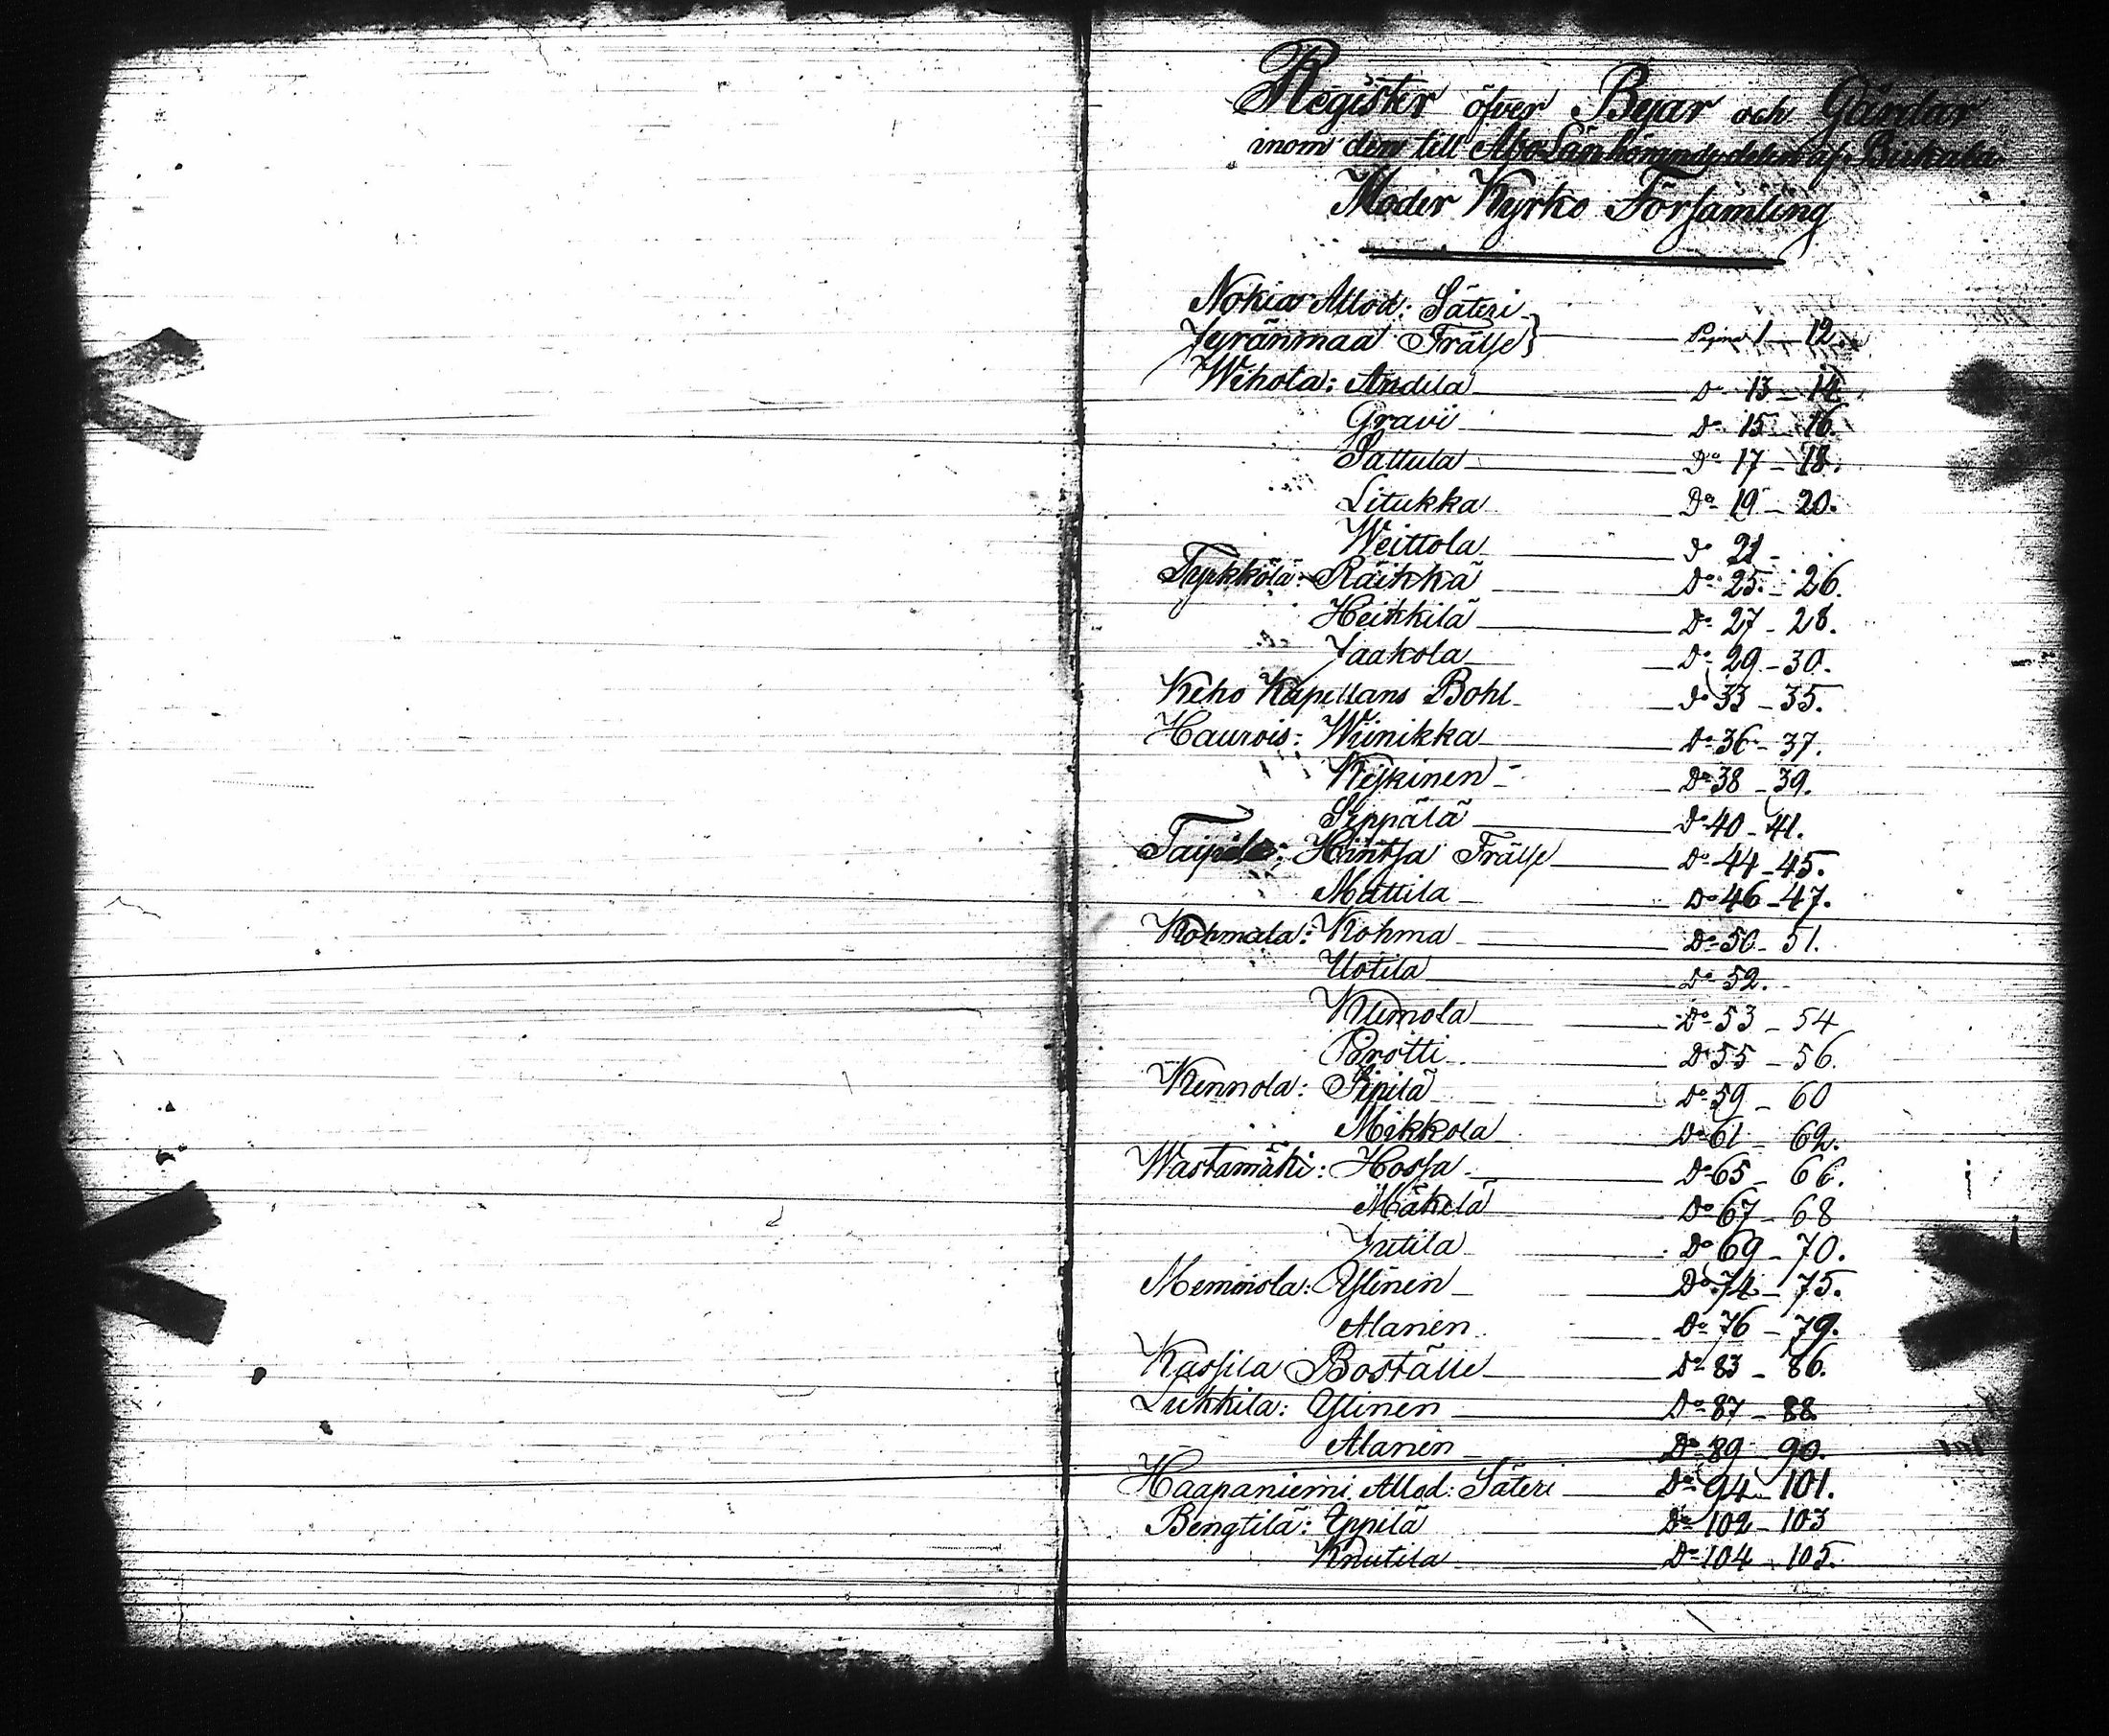 Register öfver Byar och Gårdar
inom den till Åbo Län hörande delen af Birkala
Moder Kyrko Församling
Nokia Allod: Säteri
Jyränmaa Frälse } Pagina 1 - 12.
Wihola: Andila Do 13 - 14.
Gravi Do 15 - 16.
Sattula Do 17 - 18.
Litukka Do 19 - 20.
Weittola Do 21 -
Tyrkkölä: Räikkä Do 25 - 26.
Heikkilä Do 27 - 28.
Jaakola Do 29 - 30.
Keho Kapellans Bohl Do 33 - 35.
Haurois: Wiinikka Do 36 - 37.
Keskinen Do 38 - 39.
Seppälä Do 40 - 41.
Taipale: Hintsa Frälse Do 44 - 45.
Mattila Do 46 - 47.
Kohmala: Kohma Do 50 - 51.
Uotila Do 52.
Klemola Do 53 - 54
Pirotti Do 55 - 56.
Kennola: Pipilä Do 59 - 60
Mikkola Do 61 - 62.
Wastamäki: Hossa Do 65 - 66.
Mäkelä Do 67 - 68
Jutila Do 69 - 70.
Memmola: Ylinen Do 74 - 75.
Alanen Do 76 - 79.
Kassila Boställe Do 83 - 86.
Liukkila: Ylinen Do 87 - 88
Alanen Do 89 - 90.
Haapaniemi Allod: Säteri Do 94 - 101.
Bengtilä: Eppilä Do 102 - 103
Knutila Do 104 - 105.